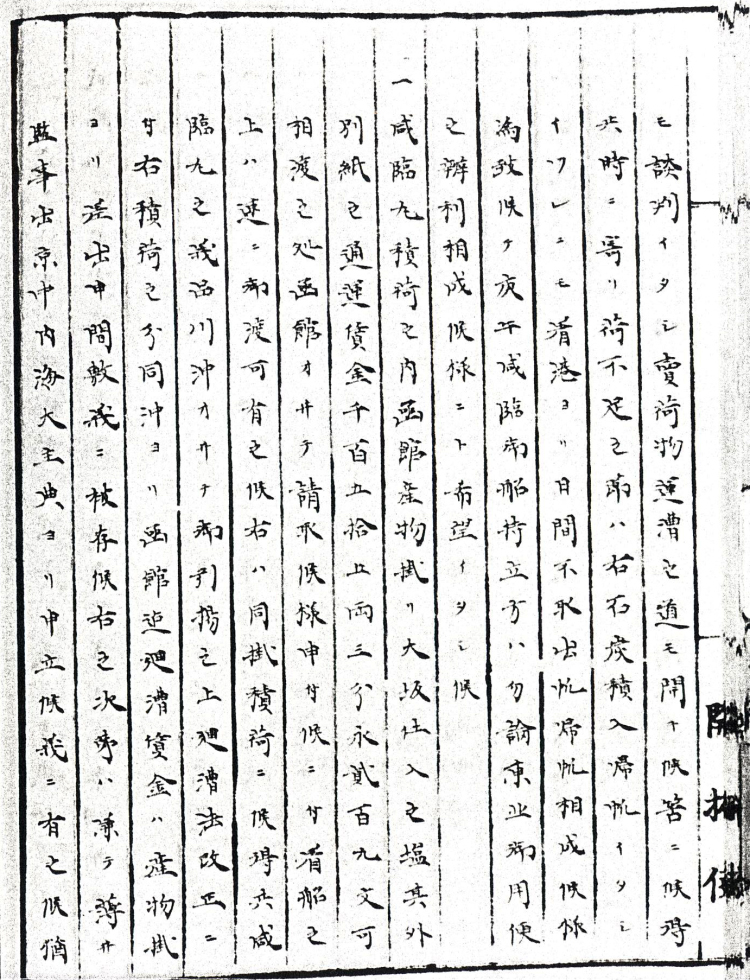 モ談判イタシ賣荷物運漕之道モ開ケ候筈ニ候得
共時ニ寄リ荷不足之節ハ右石炭積入帰帆イタシ
イツレニモ着港ヨリ日間不取出帆帰帆相成候様
為致候テ度午咸臨両船持立方ハ勿論東北御用便
之辨利相成候様ニト希望イタシ候
一咸臨丸積荷之内函館産物掛リ大坂仕入之塩其外
別紙之通運賃金千百五拾五両三分永貳百九文可
相渡之処函館オヰテ請取候様申付候ニ付着船之
上ハ速ニ御渡可有之候右ハ同掛積荷ニ候得共咸
臨丸之義品川沖オヰテ御引揚之上廻漕法改正ニ
付右積荷之分同沖ヨリ函館迠廻漕賃金ハ産物掛
ヨリ差出申間敷義ニ被存候右之次第ハ兼テ薄井
監事出京中内海大主典ヨリ申立候義ニ有之候猶
開拓使